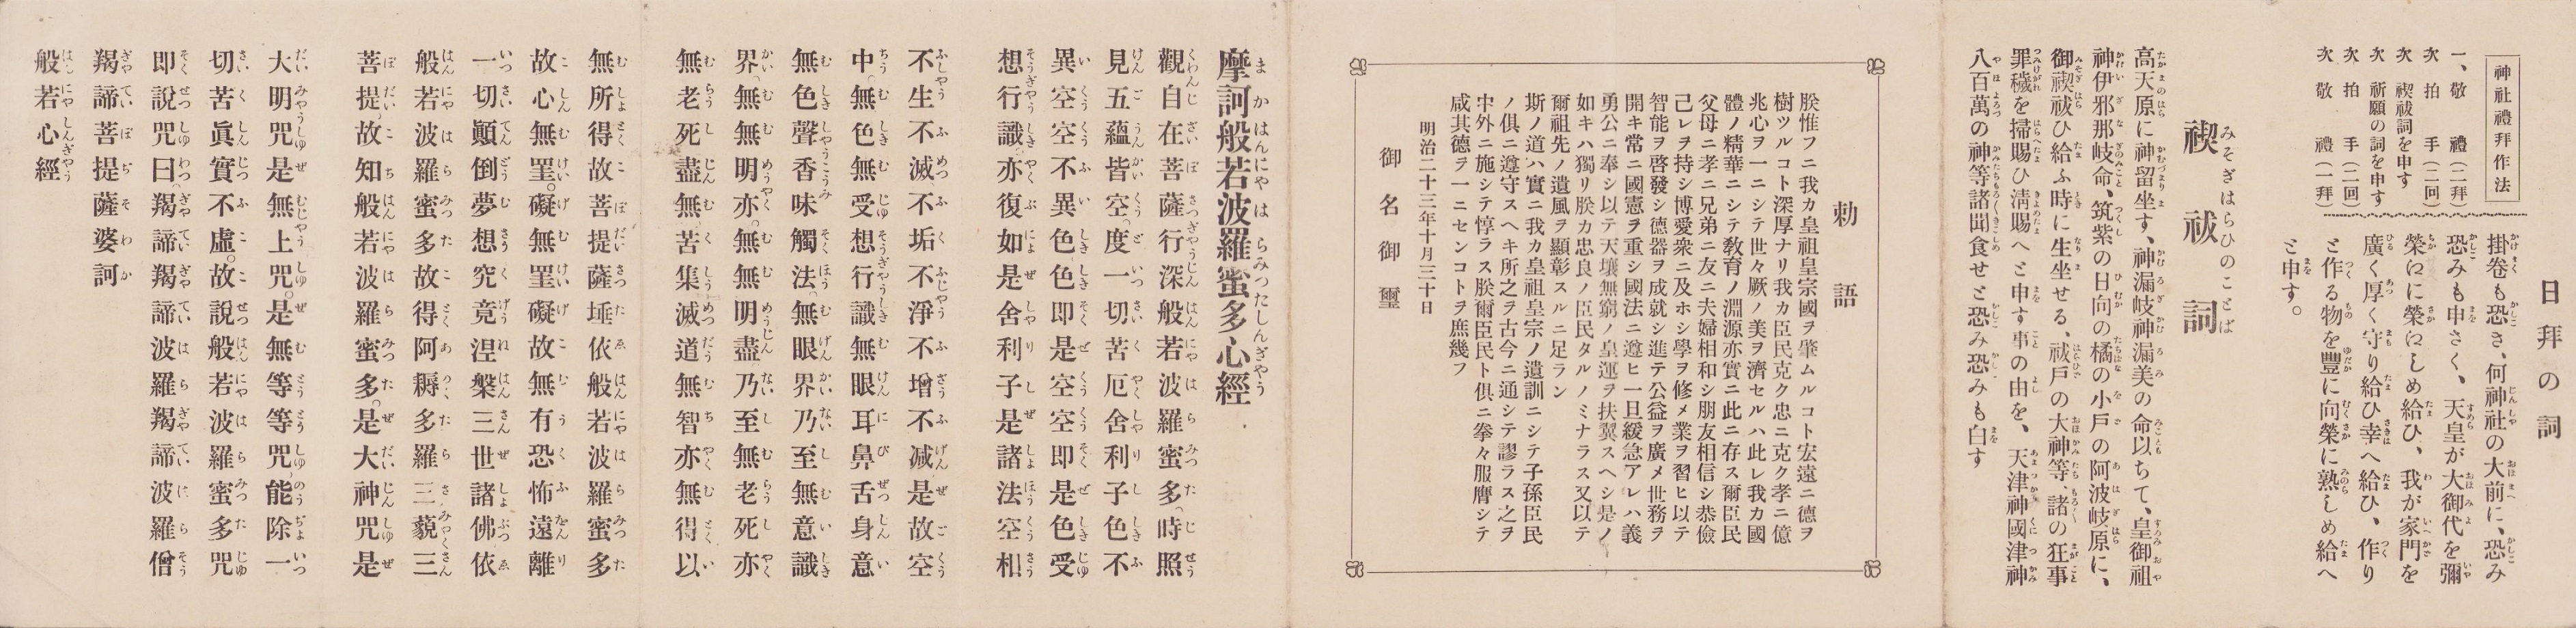 日拜の詞
神社禮拜作法
一、敬禮(二拜)
次　拍手(二回)
次　禊祓詞を申す
次　祈願の詞を申す
次　拍手(二回)
次　敬禮(一拜)
掛卷も恐き、何神社の大前に、恐み
恐みも申さく、天皇が大御代を彌
榮に榮にしめ給ひ、我が家門を
廣く厚く守り給ひ幸へ給ひ、作り
と作る物を豐に向榮に熟しめ給へ
と申す。
禊祓詞
高天原に神留坐す、神漏岐神漏美の命以ちて、皇御祖
神伊邪那岐命、筑紫の日向の橘の小戸の阿波岐原に、
御禊祓ひ給ふ時に生坐せる、祓戸の大神等、諸の狂事
罪穢を掃賜ひ淸賜へと申す事の由を、天津神國津神
八百萬の神等諸聞食せと恐み恐みも白す
勅語
朕惟フニ我カ皇祖皇宗國ヲ肇ムルコト宏遠ニ德ヲ
樹ツルコト深厚ナリ我カ臣民克ク忠ニ克ク孝ニ億
兆心ヲ一ニシテ世々厥ノ美ヲ濟セルハ此レ我カ國
體ノ精華ニシテ敎育ノ淵源亦實ニ此ニ存ス爾臣民
父母ニ孝ニ兄弟ニ友ニ夫婦相和シ朋友相信シ恭儉
己レヲ持シ博愛衆ニ及ホシ學ヲ修メ業ヲ習ヒ以テ
智能ヲ啓發シ德器ヲ成就シ進テ公益ヲ廣メ世務ヲ
開キ常ニ國憲ヲ重シ國法ニ遵ヒ一旦緩急アレハ義
勇公ニ奉シ以テ天壤無窮ノ皇運ヲ扶翼スヘシ是ノ
如キハ獨リ朕カ忠良ノ臣民タルノミナラス又以テ
爾祖先ノ遺風ヲ顯彰スルニ足ラン
斯ノ道ハ實ニ我カ皇祖皇宗ノ遺訓ニシテ子孫臣民
ノ俱ニ遵守スヘキ所之ヲ古今ニ通シテ謬ラス之ヲ
中外ニ施シテ悖ラス朕爾臣民ト俱ニ拳々服膺シテ
咸其德ヲ一ニセンコトヲ庶幾フ
明治二十三年十月三十日
御名御璽
摩訶般若波羅蜜多心經
觀自在菩薩行深般若波羅蜜多、時照
見五蘊皆空。度一切苦厄舍利子色不
異空空不異色色即是空空即是色受
想行識亦復如是舍利子是諸法空相
不生不滅、不垢不淨不增不減是故空
中。無色無受想行識無眼耳鼻舌身意
無色聲香味觸法。無眼界乃至無意識
界無無明亦。無無明盡乃至無老死亦
無老死盡無苦集滅道無智亦無得以
無所得故菩提薩埵依般若波羅蜜多
故心無罣。礙無罣礙故無有恐怖遠離
一切顚倒夢想究竟涅槃三世諸佛依
般若波羅蜜多故得阿耨多羅三藐三
菩提。故知般若波羅蜜多。是大神咒是
大明咒是無上咒。是無等等咒能除一
切苦眞實不虛。故說般若波羅蜜多咒
即說咒曰、羯諦羯諦波羅羯諦波羅僧
羯諦菩提薩婆訶
般若心經